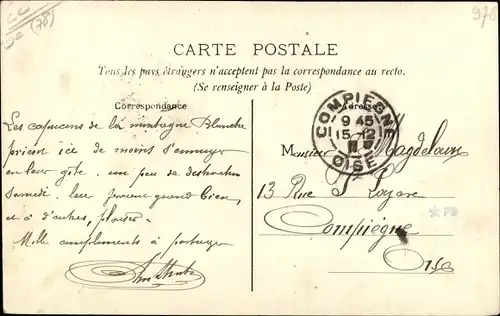 CARTE POSTALE
Tous les pays étrangers n'acceptent pas la correspondance au recto.
(Se renseigner à la Poste)
Correspondance
Adresse
COMPIEGNE
9 45
15 12
OISE
Les capucins de la montagne Blanche
prient ice de moins s'ennuyer
en leur gite. un peu se
Samedi. leur grand bien
et à d'autres, plaisir.
Mille compliments à partager
Monsieur
13 Rue St Lazare
Compiègne
Oise
(78)
976